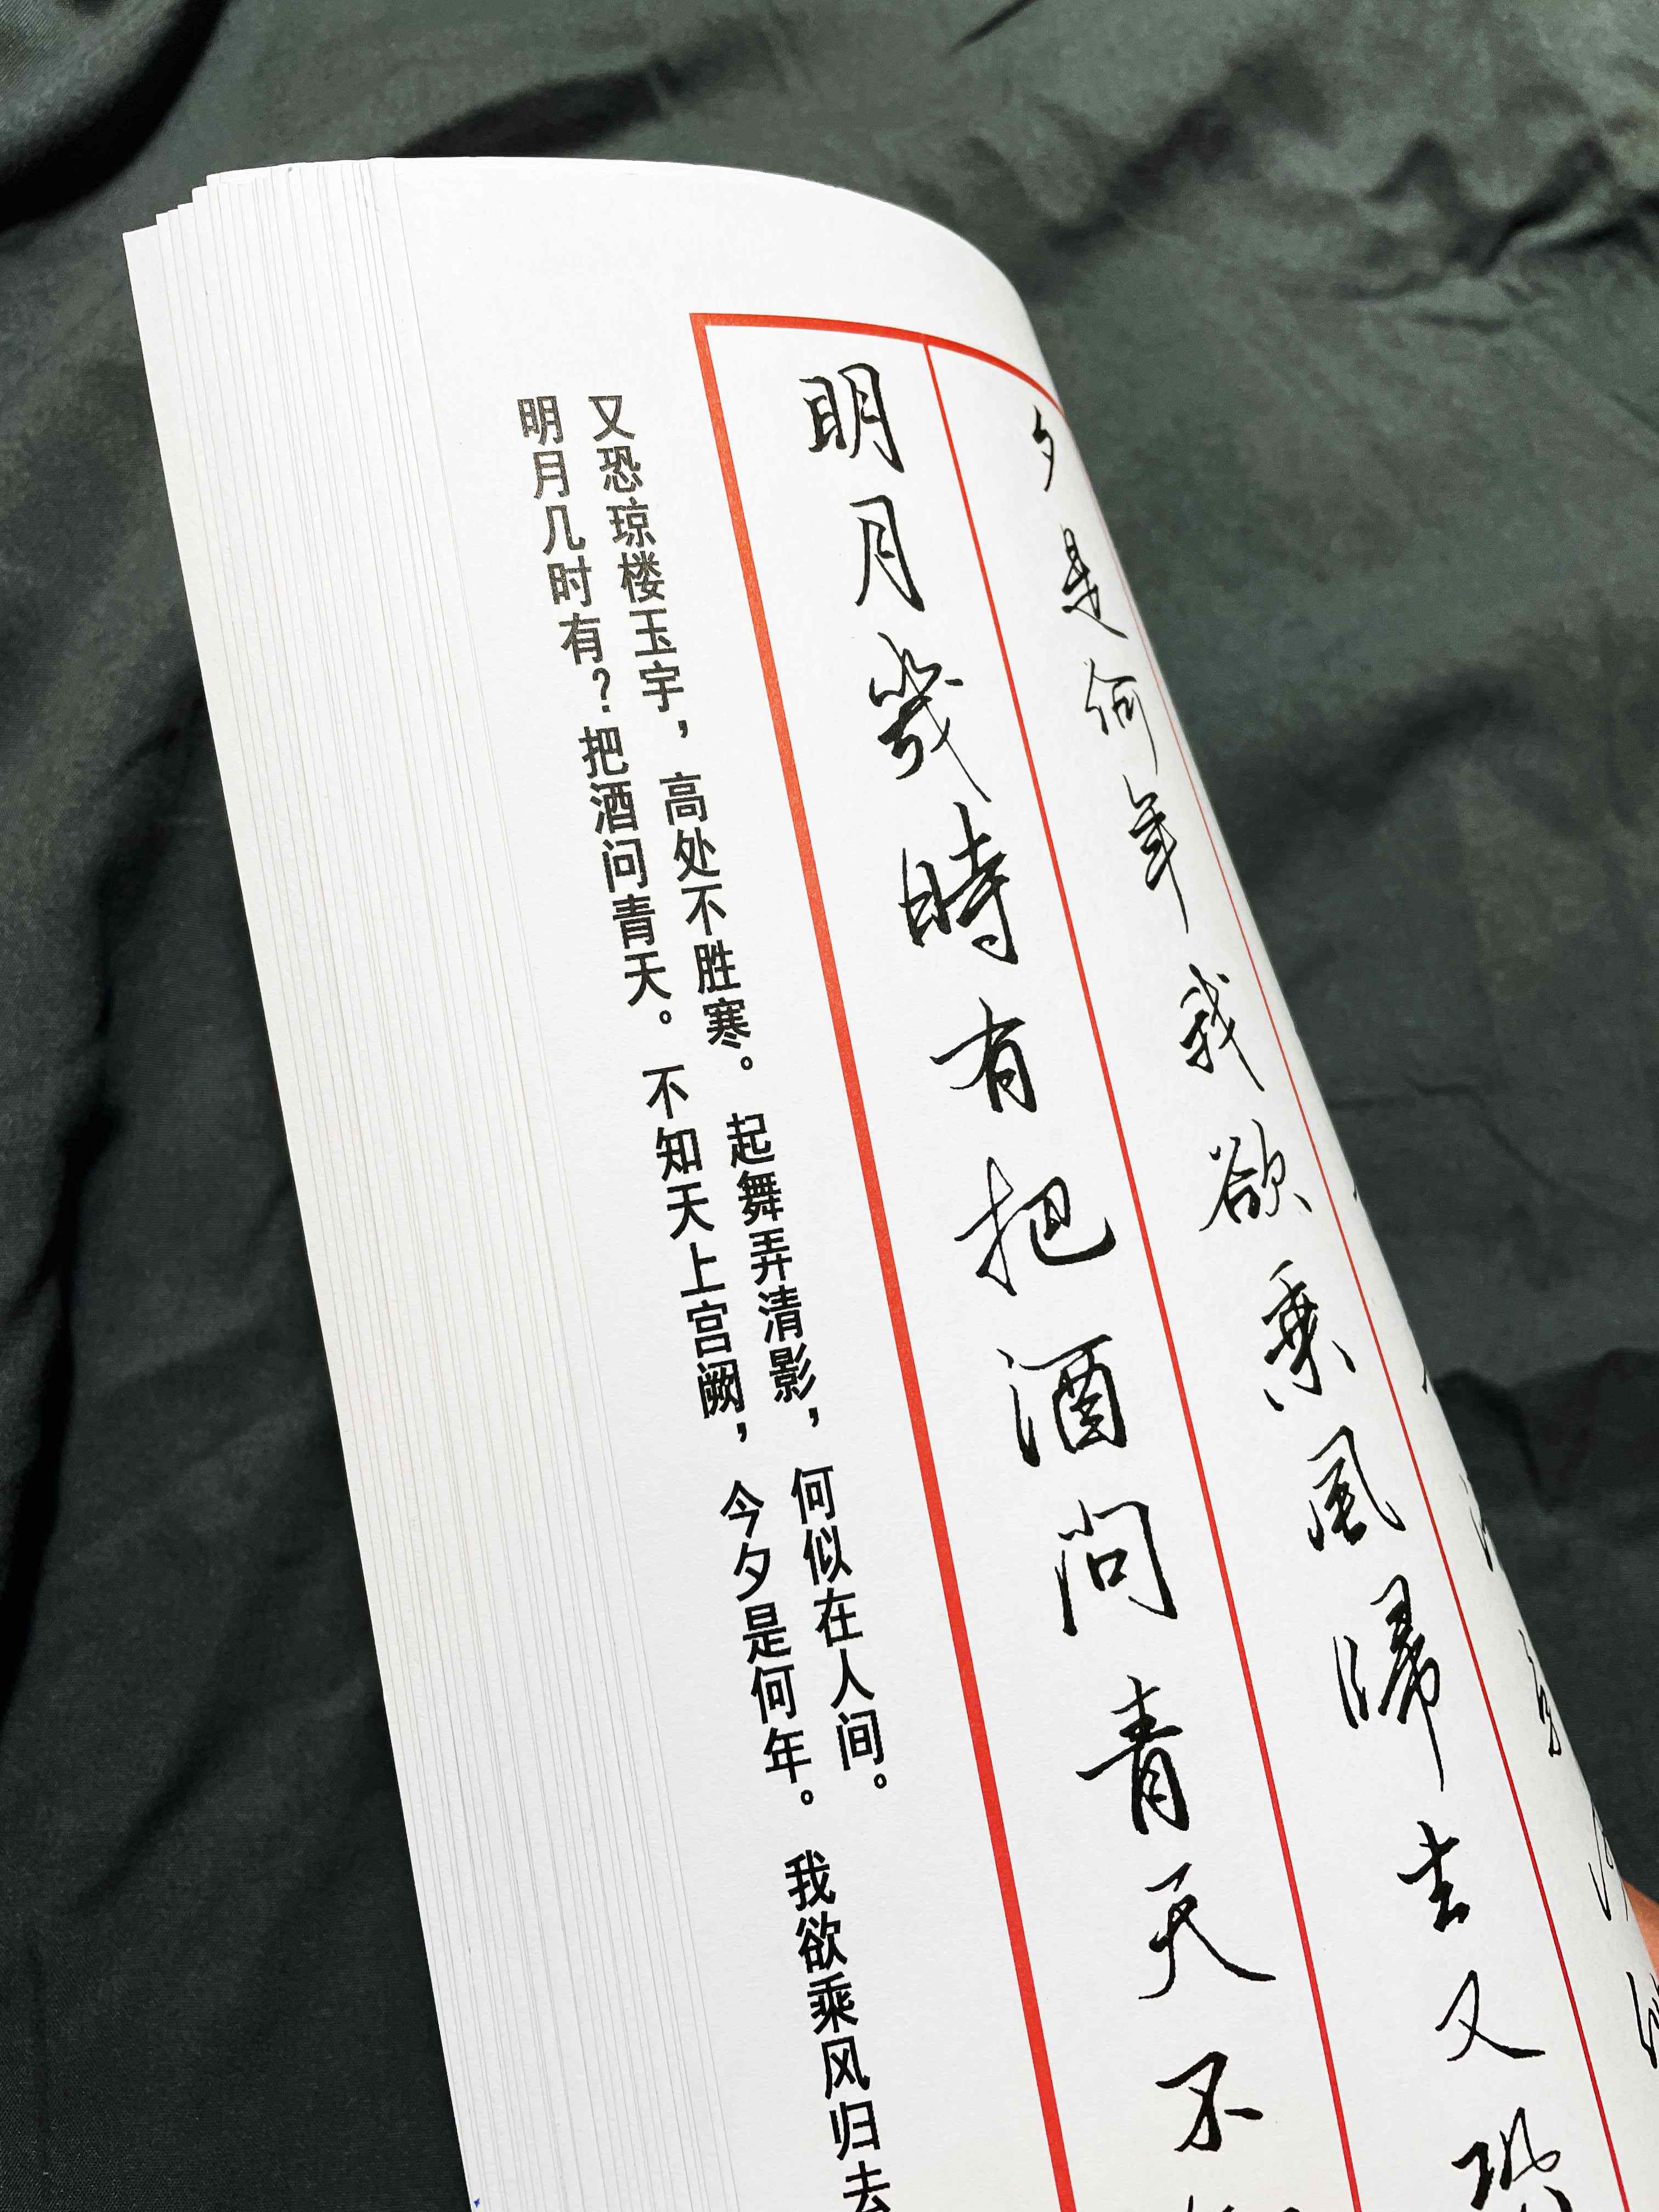 明月几时有？把酒问青天。不知天上宫阙，今夕是何年。我欲乘风归去
又恐琼楼玉宇，高处不胜寒。起舞弄清影，何似在人间。
明月幾時有把酒問青天不
夕是何年我欲乘風歸去又恐